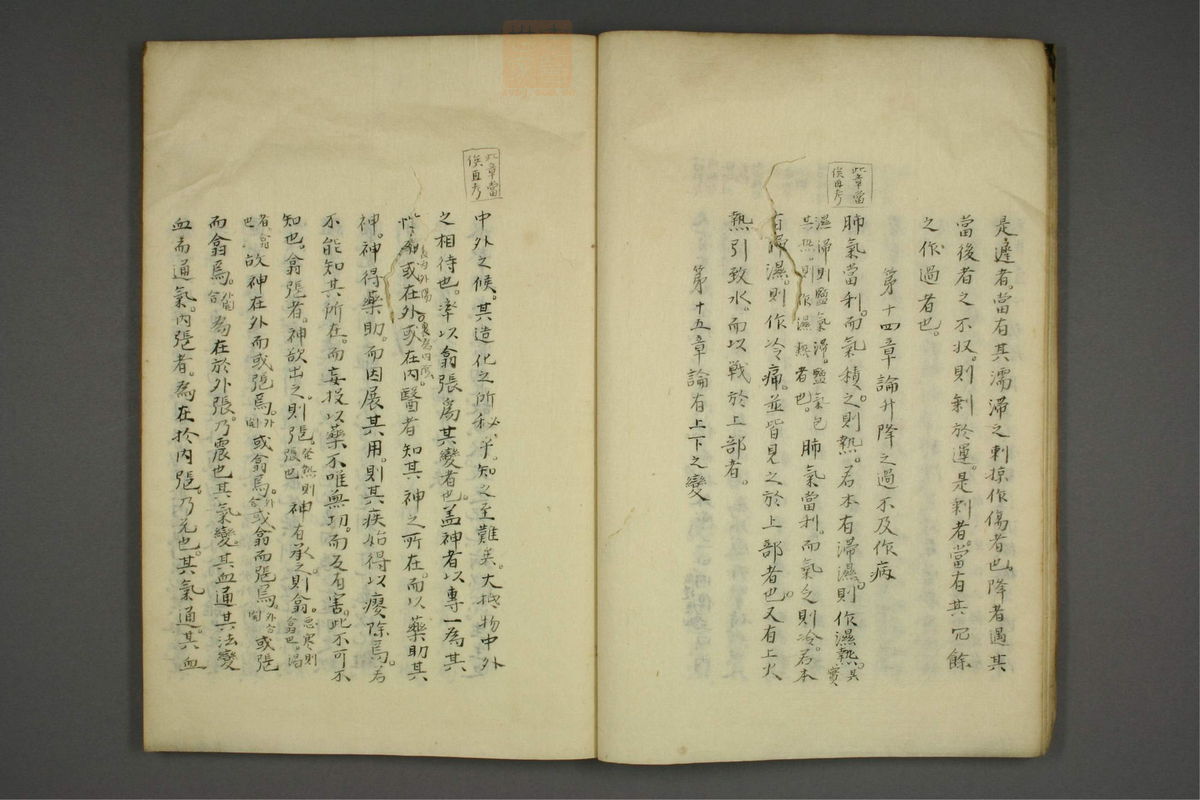 是遲者。當有其濡滯之剌掠作傷者也。降者過其
當後者之不収。則剰於運。是剰者。當有其冗餘
之作過者也。
第十四章論升降之過不及作病
此章當
俟再考
肺氣當利。而氣積之則熱。若本有滞濕。則作濕熱。其實
濕滞則鹽氣滞。鹽氣包
其熱。則作濕熱者也。肺氣當利。而氣乏則冷。若本
有滞濕。則作冷痛。並皆見之於上部者也。又有上火
熱引致水。而以戦於上部者。
第十五章論有上下之變
此章當
俟再考
中外之候。其造化之所秘乎。知之至難矣。大抵物中外
之相待也。率以翕張為其變者也。盖神者以專一為其
性。翕或在外或在内。醫者知其神之所在。而以藥助其
表為外陽
裏為内陰
神。神得藥助。而因展其用。則其疾始得以瘳除焉。若
不能知其所在。而妄投以藥。不唯無功。而反有害。此不可不
知也。翕張者。神欲出之。則張。發熱則張也。神有承之。則翕。惡寒則翕也。
故神在外而或張焉。或翕焉。或翕而張焉。或張
而翕焉。為在於外張。乃震也。其氣變。其血通其法變
血而通氣。内張者。為在於内張。乃兊也。其氣通。其血